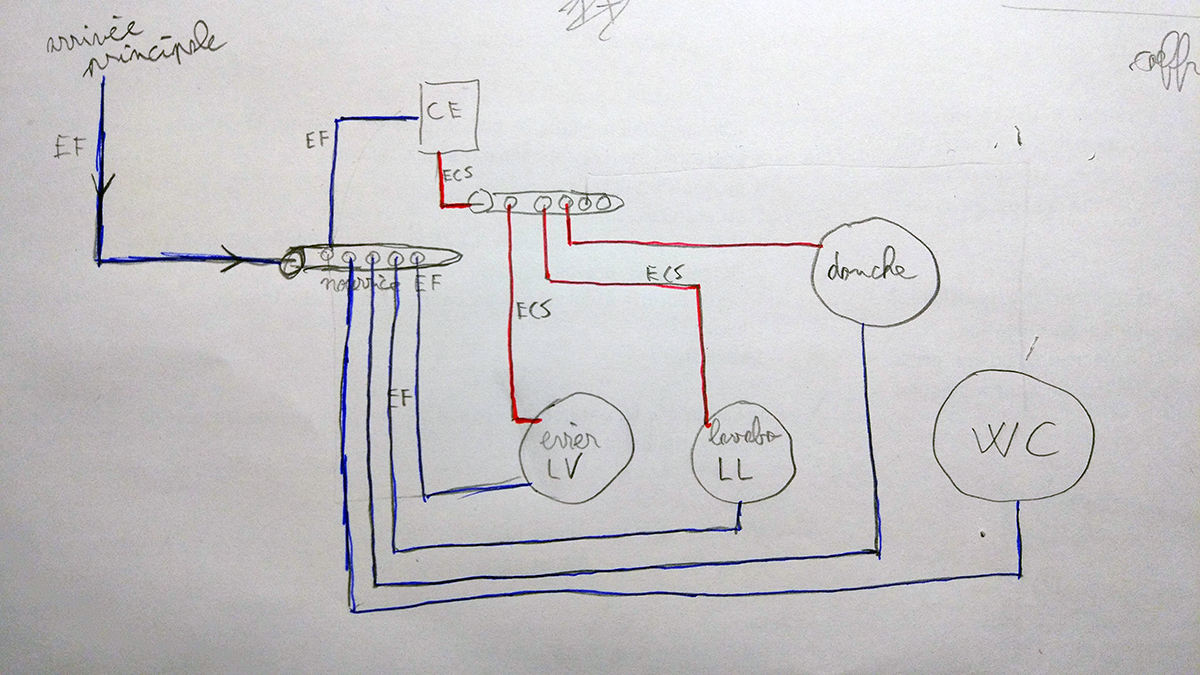 arrivée
principale
coffr
EF
CE
EF
ECS
nourrice EF
douche
ECS
ECS
EF
évier
LV
lavabo
LL
WC